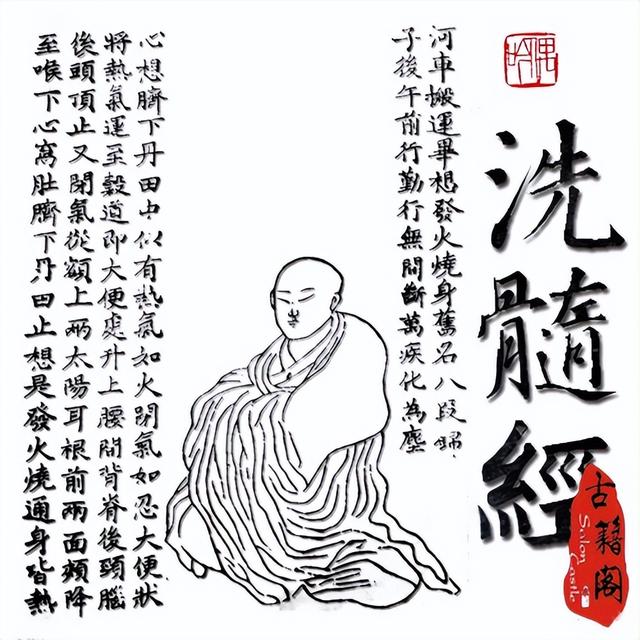 洗髓經
古籍阁
Salon Castle
河車搬運畢想發火燒身舊名八段錦
子後午前行勤行無間斷萬疾化為塵
心想臍下丹田中似有熱氣如火閉氣如忍大便狀
將熱氣運至穀道即大便處升上腰間背脊後頸腦
後頭頂止又閉氣從額上兩太陽耳根前兩面頰降
至喉下心窩肚臍下丹田止想是發火燒通身皆熱